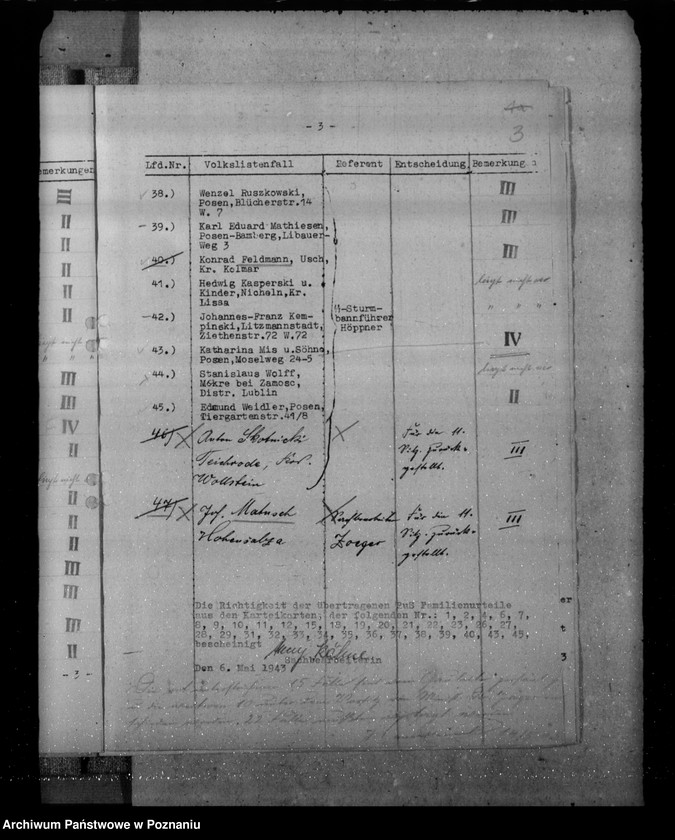 4a
3
- 3 -
emerkungen
Lfd.Nr. Volkslistenfall Referent Entscheidung Bemerkungen
38.) Wenzel Ruszkowski, III
Posen,Blücherstr.14
W. 7
39.) Karl Eduard Mathiesen, III
Posen-Bamberg,Libauer-
Weg 3
40.) Konrad Feldmann, Usch, III
Kr. Kolmar
41.) Hedwig Kasperski u. liegt nicht vor
Kinder,Nicheln,Kr.
Lissa
42.) Johannes-Franz Kem- " " "
pinski,Litzmannstadt,
Ziethenstr.72 W.72
SS-Sturm-
bannführer
Höppner
43.) Katharina Mis u.Söhne, IV
Posen,Moselweg 24-5
44.) Stanislaus Wolff, liegt nicht vor
Mokre bei Zamosc,
Distr. Lublin
45.) Edmund Weidler,Posen, II
Tiergartenstr.41/8
46) Anton Skotnicki Für die 11. III
Teichrode, Kr. Sitz. zurück-
Wollstein gestellt.
47) Jos. Matusch Für die 11. III
Hohensalza Zoeger Sitz. zurück-
gestellt.
Die Richtigkeit der übertragenen RuS Familienurteile
aus den Karteikarten; der folgenden Nr.: 1, 2, 4, 6, 7,
8, 9, 10, 11, 12, 15, 18, 19, 20, 21, 22, 23, 26, 27,
28, 29, 31, 32, 33, 34, 35, 36, 37, 38, 39, 40, 43, 45,
bescheinigt
Sachbearbeiterin
Den 6. Mai 1943
er
t
3
III
II
II
II
II
II
III
III
IV
II
II
II
II
III
III
III
II
- 3 -
Archiwum Państwowe w Poznaniu